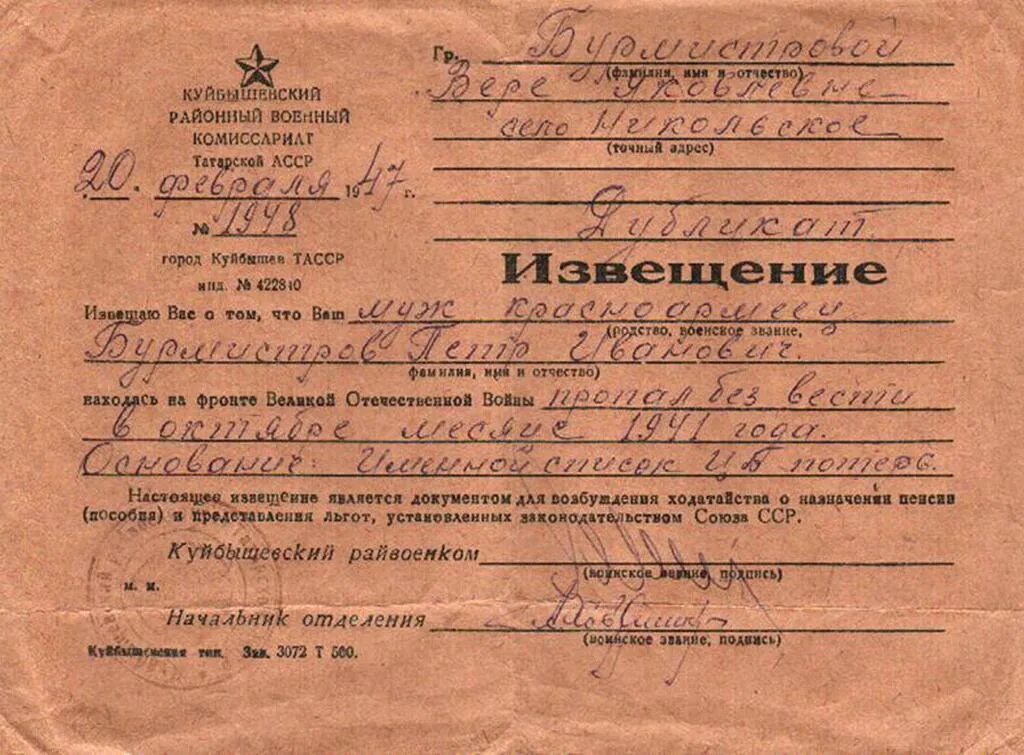 КУЙБЫШЕВСКИЙ
РАЙОННЫЙ ВОЕННЫЙ
КОМИССАРИАТ
Татарской АССР
20. февраля 1947 г.
№ 1948
город Куйбышев ТАССР
инд. № 422840
Гр. Бурмистровой
(фамилия, имя и отчество)
Вере Яковлевне
село Никольское
(точный адрес)
Дубликат.
Извещение
Извещаю Вас о том, что Ваш муж красноармеец
(родство, военское звание,
Бурмистров Петр Иванович.
фамилия, имя и отчество)
находясь на фронте Великой Отечественной Войны пропал без вести
в октябре месяце 1941 года.
Основание: Именной список ЦБ потерь.
Настоящее извещение является документом для возбуждения ходатайства о назначении пенсии
(пособия) и представления льгот, установленных законодательством Союза ССР.
Куйбышевский райвоенком
(воинское звание, подпись)
м. п.
Начальник отделения
(воинское звание, подпись)
Куйбышевская тип. Зак. 3072 Т 500.